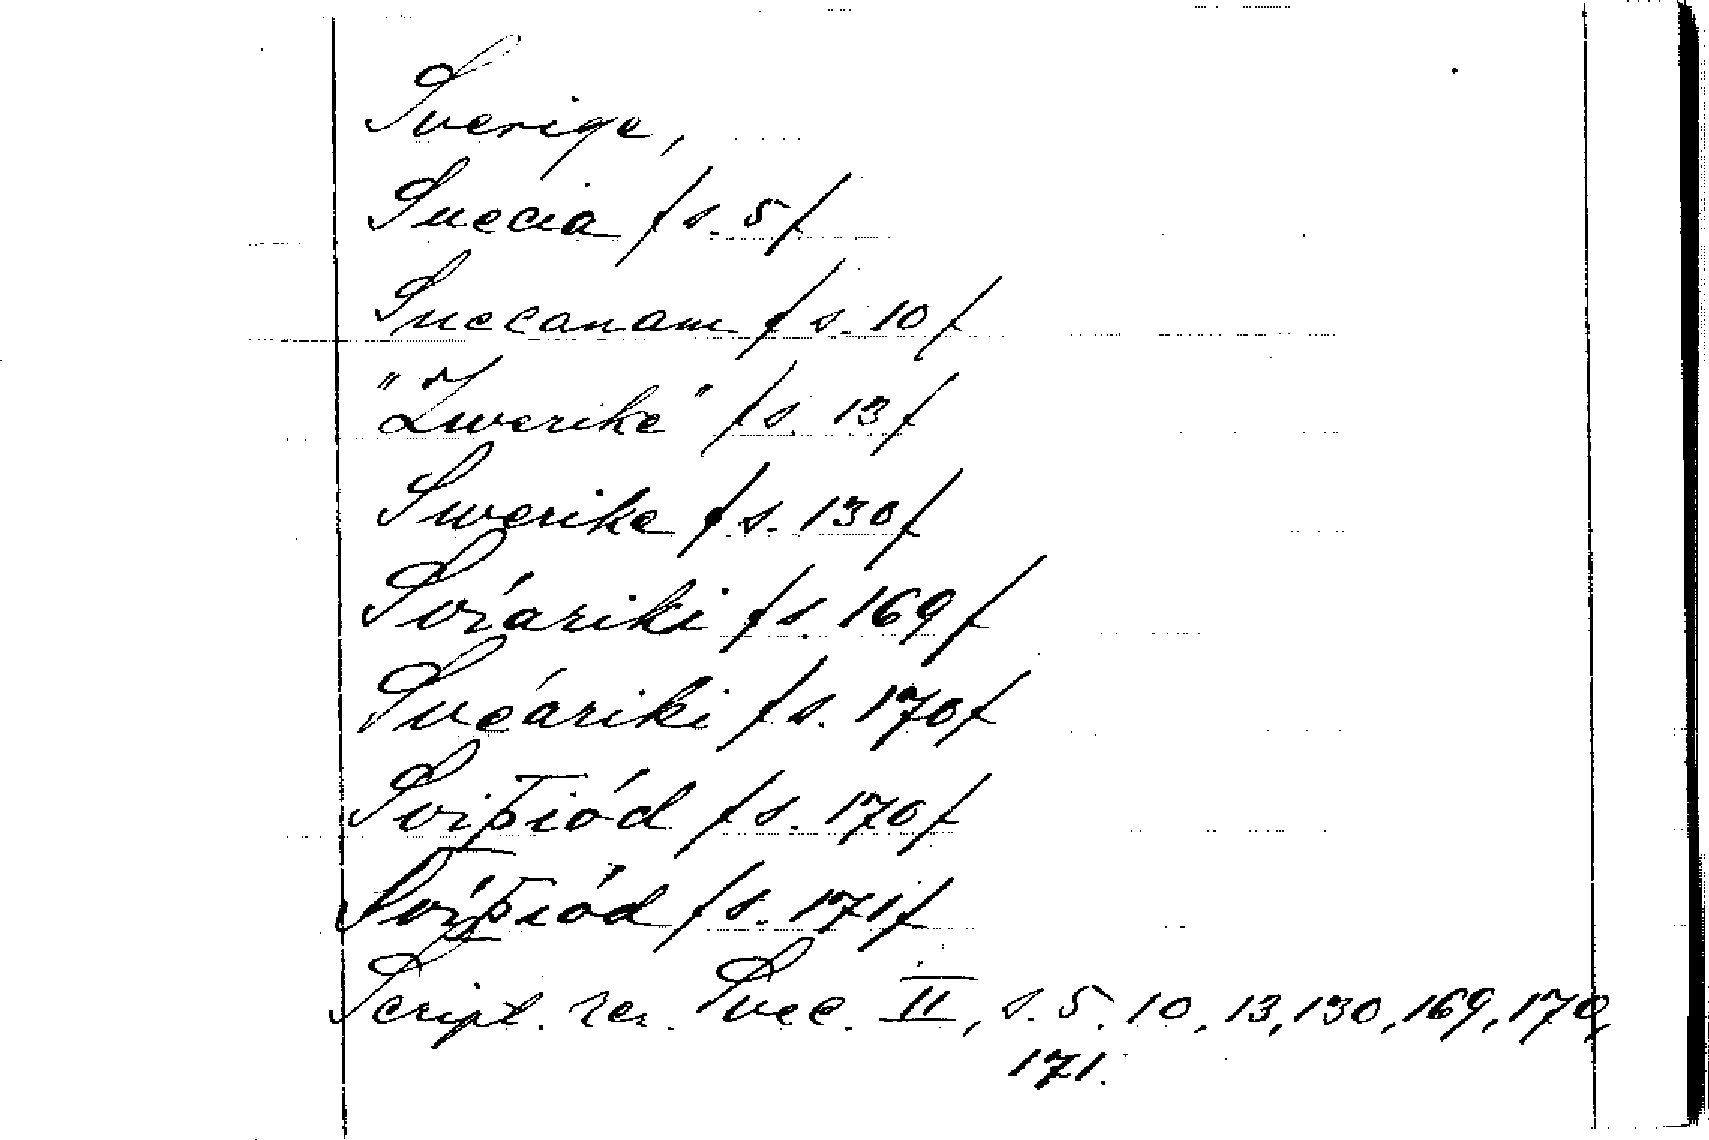 Sverige,
Suecia /s. 5/
Suecanam /s. 10/
"Zwerike" /s. 13/
Swerike /s. 130/
Svíariki /s. 169/
Svéariki /s. 170/
Sviþiód /s. 170/
Svíþiód /s. 171/
Script. rer. Svec. II, s. 5, 10, 13, 130, 169, 170,
171.